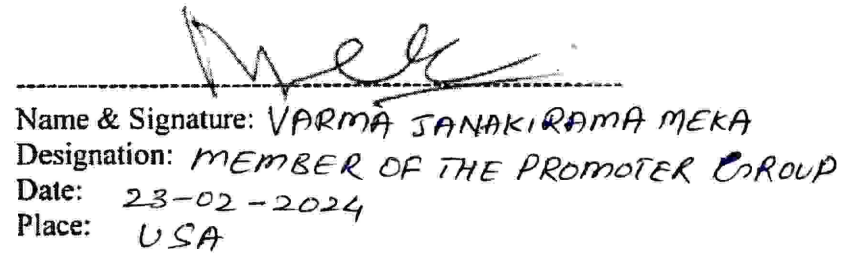 Name & Signature: VARMA JANAKIRAMA MEKA
Designation: MEMBER OF THE PROMOTER GROUP
Date: 23-02-2024
Place: USA